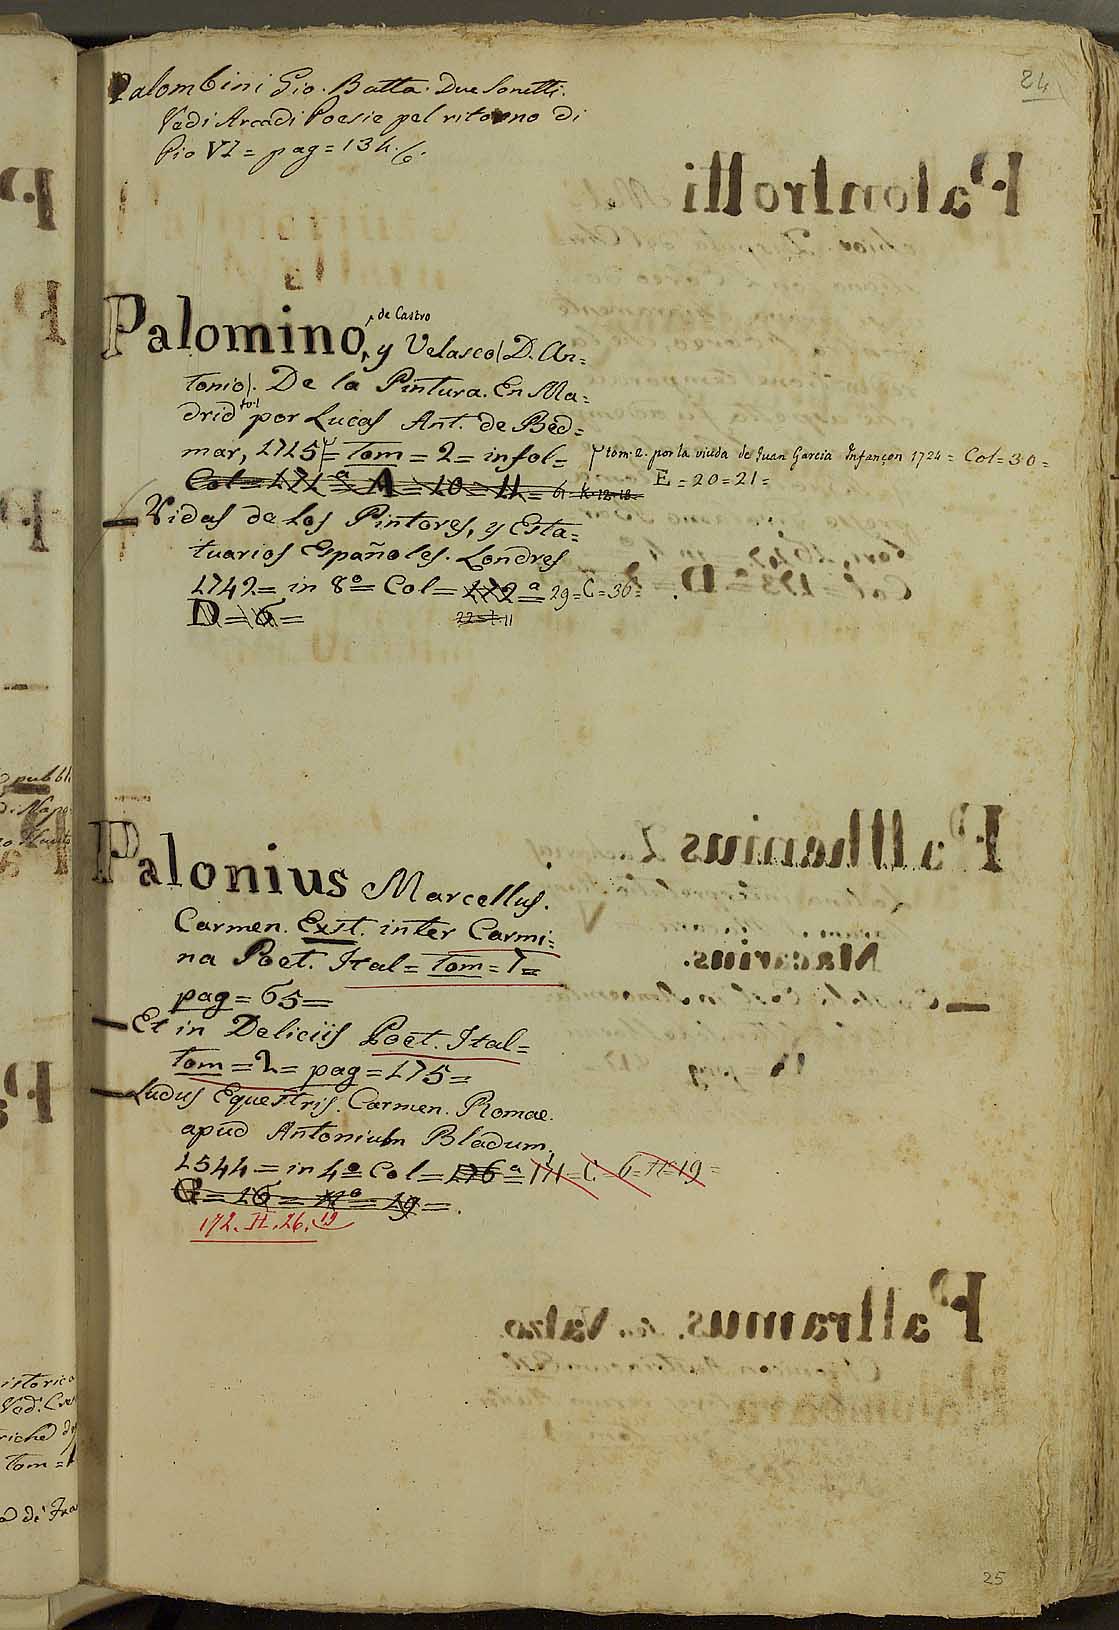 24
Palombini Gio. Batta. Due Sonetti.
Vedi Arcadi Poesie pel ritorno di
Pio VI = pag = 134. 6.
Palomino, y Velasco (D. An=
de Castro
tonio). De la Pintura. En Ma=
drid por Lucas Ant. de Bed=
to. 1
mar, 1715 = Tom = 2 = in fol =
tom. 2. por la viuda de Juan Garcia Infançon 1724 = Col = 30 =
E = 20 = 21 =
Col = 171 = A = 10 = 11 =
Vidas de los Pintores, y Esta=
tuarios Españoles. Londres
1742 = in 8º = Col = 172 = 29 = C = 36 =
D = 6 =
Palonius Marcellus.
Carmen. Exst. inter Carmi=
na Poet. Ital = Tom = 7 =
pag = 65 =
Et in Deliciis Poet. Ital =
Tom = 2 = pag = 175 =
Ludus Equestris. Carmen. Romae.
apud Antonium Bladum,
1544 = in 4º Col = 176 = 171 = C = 6 = H = 19 =
G = 16 = = 19 = .
172. H. 26. 19
25